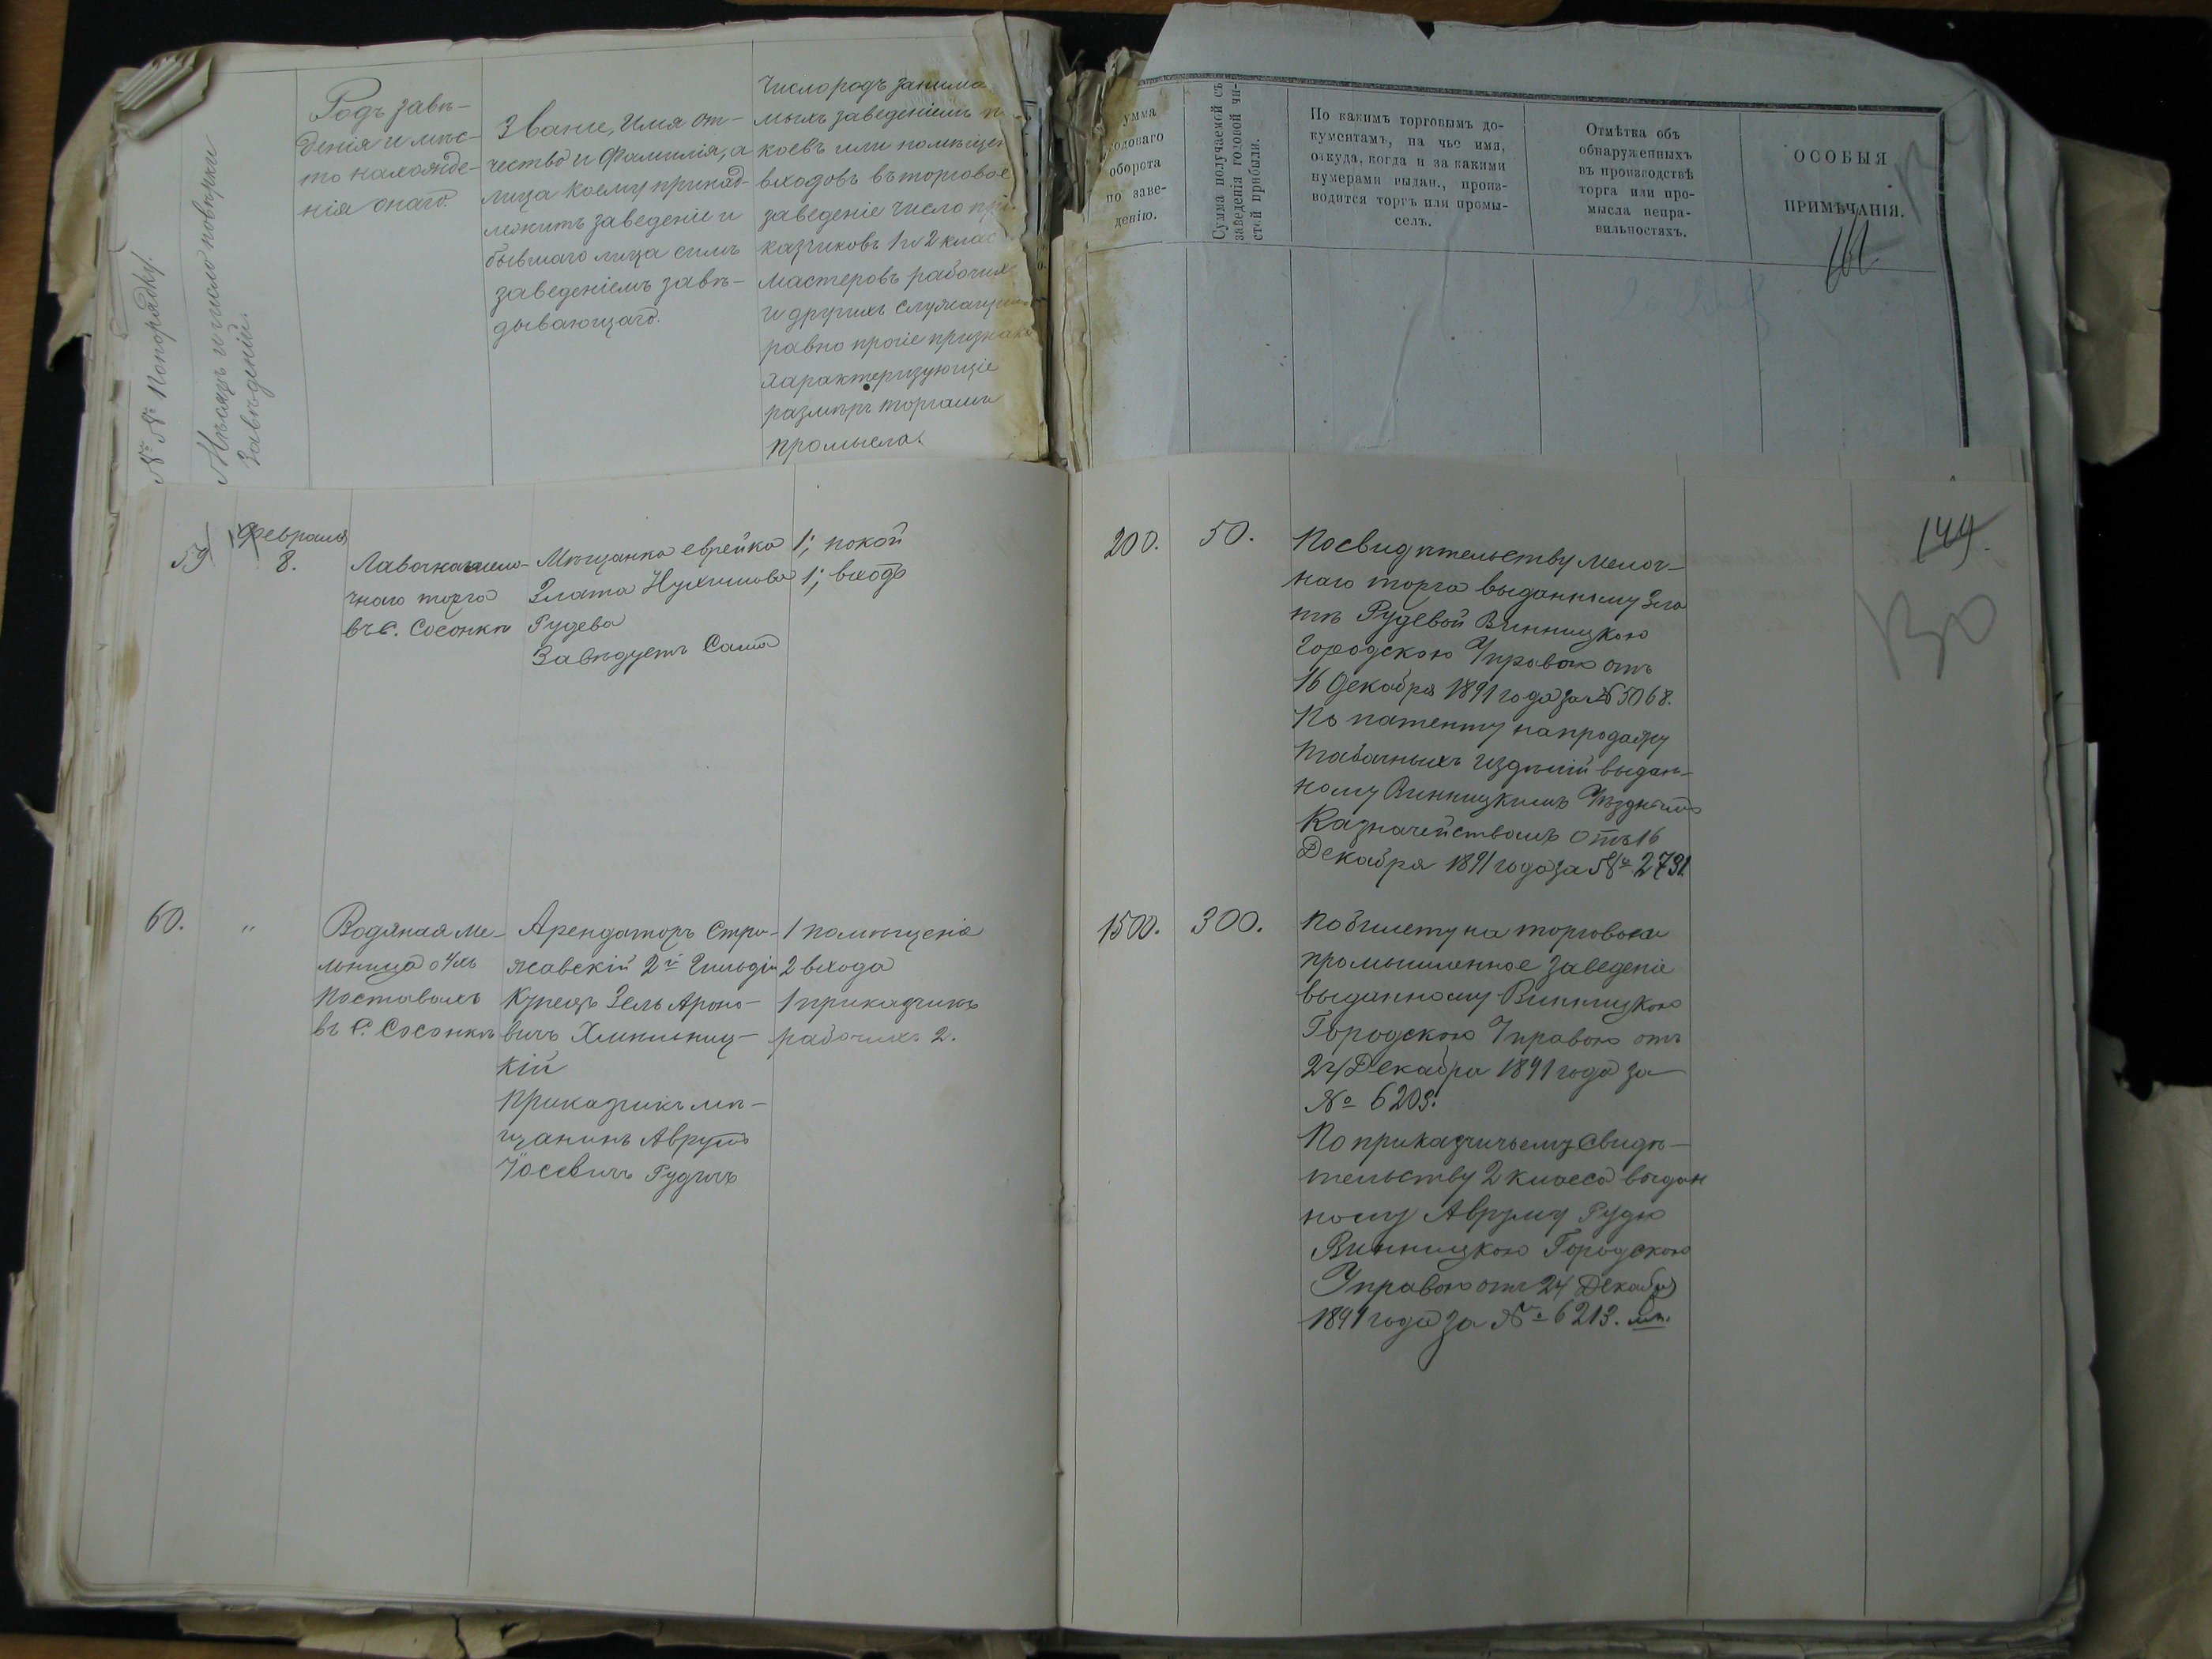 № № Попорядку.
Мѣсяцъ и число повѣрки
Завѣденій.
Родъ завѣ-
денія и мѣс-
то нахожде-
нія онаго.
Званіе, Имя от-
чество и Фамилія, а
лица коему принад-
лежитъ заведеніе и
бывшаго лица симъ
заведеніемъ завѣ-
дывающаго.
Число родъ занима
мыхъ заведеніемъ п
коевъ или помѣщен
входовъ въ торговое
заведеніе число при
казчиковъ 1 и 2 клас
мастеровъ рабочихъ
и другихъ служащихъ
равно прочіе признаки
характеризующіе
размѣръ торга или
промысла.
умма
годоваго
оборота
по заве-
денію.
Сумма получаемой съ
заведенія годовой чи-
стой прибыли.
По какимъ торговымъ до-
кументамъ, на чье имя,
откуда, когда и за какими
нумерами выдан., произ-
водится торгъ или промы-
селъ.
Отмѣтка объ
обнаруженныхъ
въ производствѣ
торга или про-
мысла непра-
вильностяхъ.
ОСОБЫЯ
ПРИМѢЧАНІЯ.
59
Февраля
8.
Лавочка мело-
чнаго торга
въ с. Сосонкѣ
Мѣщанка еврейка
Злата Нухимова
Рудева
Завѣдуетъ Сама
1; покой
1; входъ
200.
50.
По свидѣтельству мелоч-
наго торга выданному Зла
тѣ Рудевой Винницкою
Городскою Управою отъ
16 Декабря 1891 года за № 5068.
По патенту на продажу
табачныхъ издѣлій выдан-
ному Винницкимъ Уѣзднымъ
Казначействомъ отъ 16
Декабря 1891 года за № 2791
149.
130
60.
"
Водяная ме-
льница о 4хъ
поставахъ
въ с. Сосонкѣ
Арендаторъ Стри-
жавскій 2й Гильдіи
Купецъ Зель Ароно-
вичъ Хмѣльниц-
кій
Приказчикъ мѣ-
щанинъ Аврумъ
Іосевичъ Рудычъ
1 помѣщеніе
2 входа
1 приказчикъ
рабочихъ 2.
1500.
300.
По билету на торговое
промышленное заведеніе
выданному Винницкою
Городскою Управою отъ
24 Декабря 1891 года за
№ 6203.
По приказчичьему свидѣ-
тельству 2 класса выдан
ному Авруму Рудю
Винницкою Городскою
Управою отъ 24 Декабря
1891 года за № 6213.